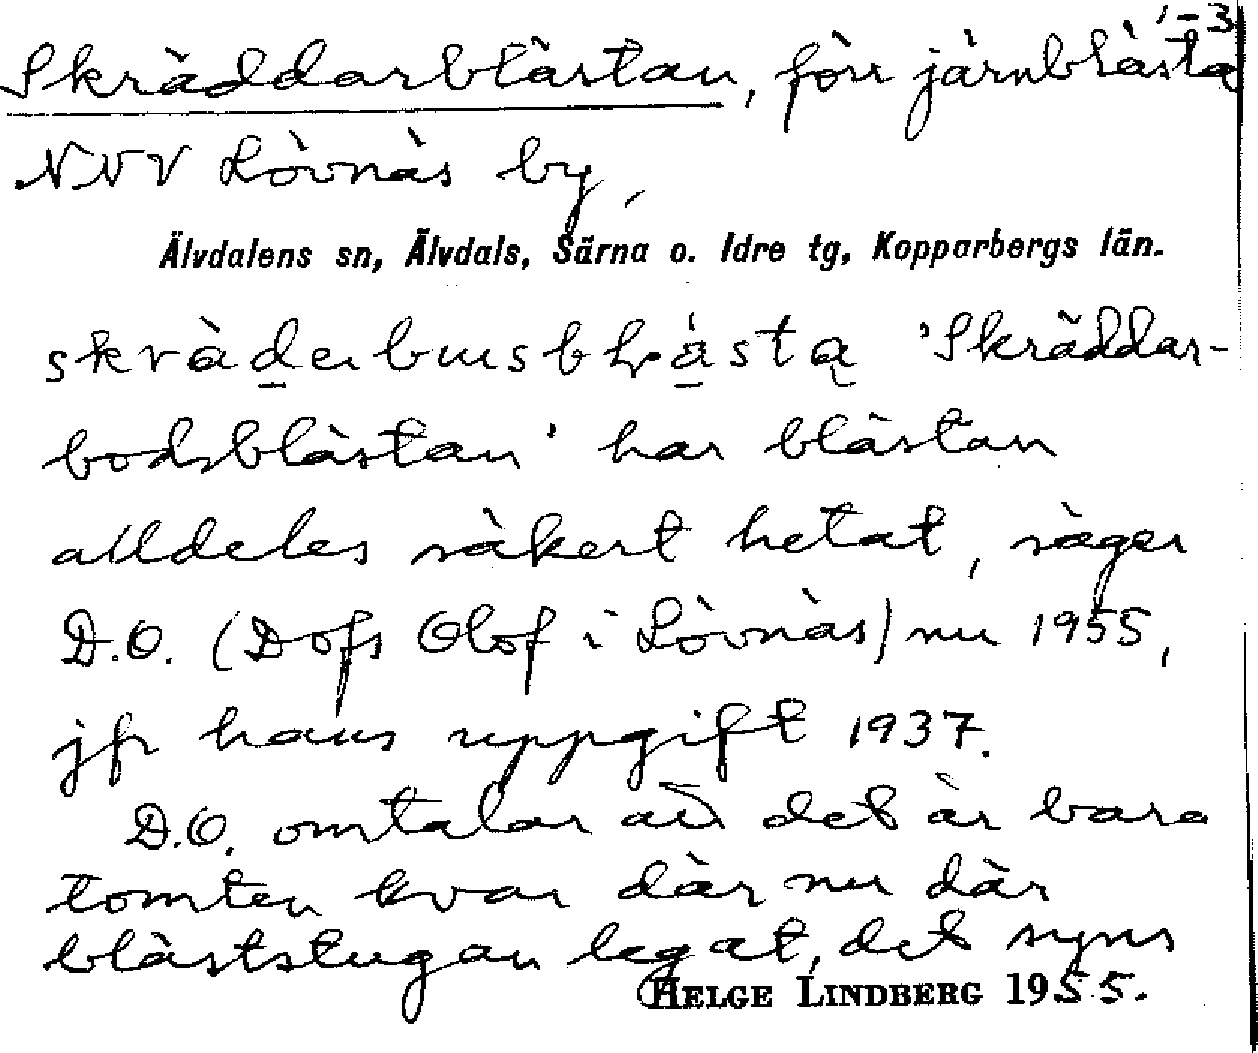 1-3
Skräddarblästan, förr järnblästa
NVV Lövnäs by,
Älvdalens sn, Älvdals, Särna o. Idre tg, Kopparbergs län.
'Skräddar-
bodsblästan' har blästan
alldeles säkert hetat, säger
D.O. (Dofs Olof i Lövnäs) nu 1955,
jfr hans uppgift 1937.
D.O. omtalar att det är bara
tomten kvar där nu där
bläststugan legat, det syns
HELGE LINDBERG 1955.